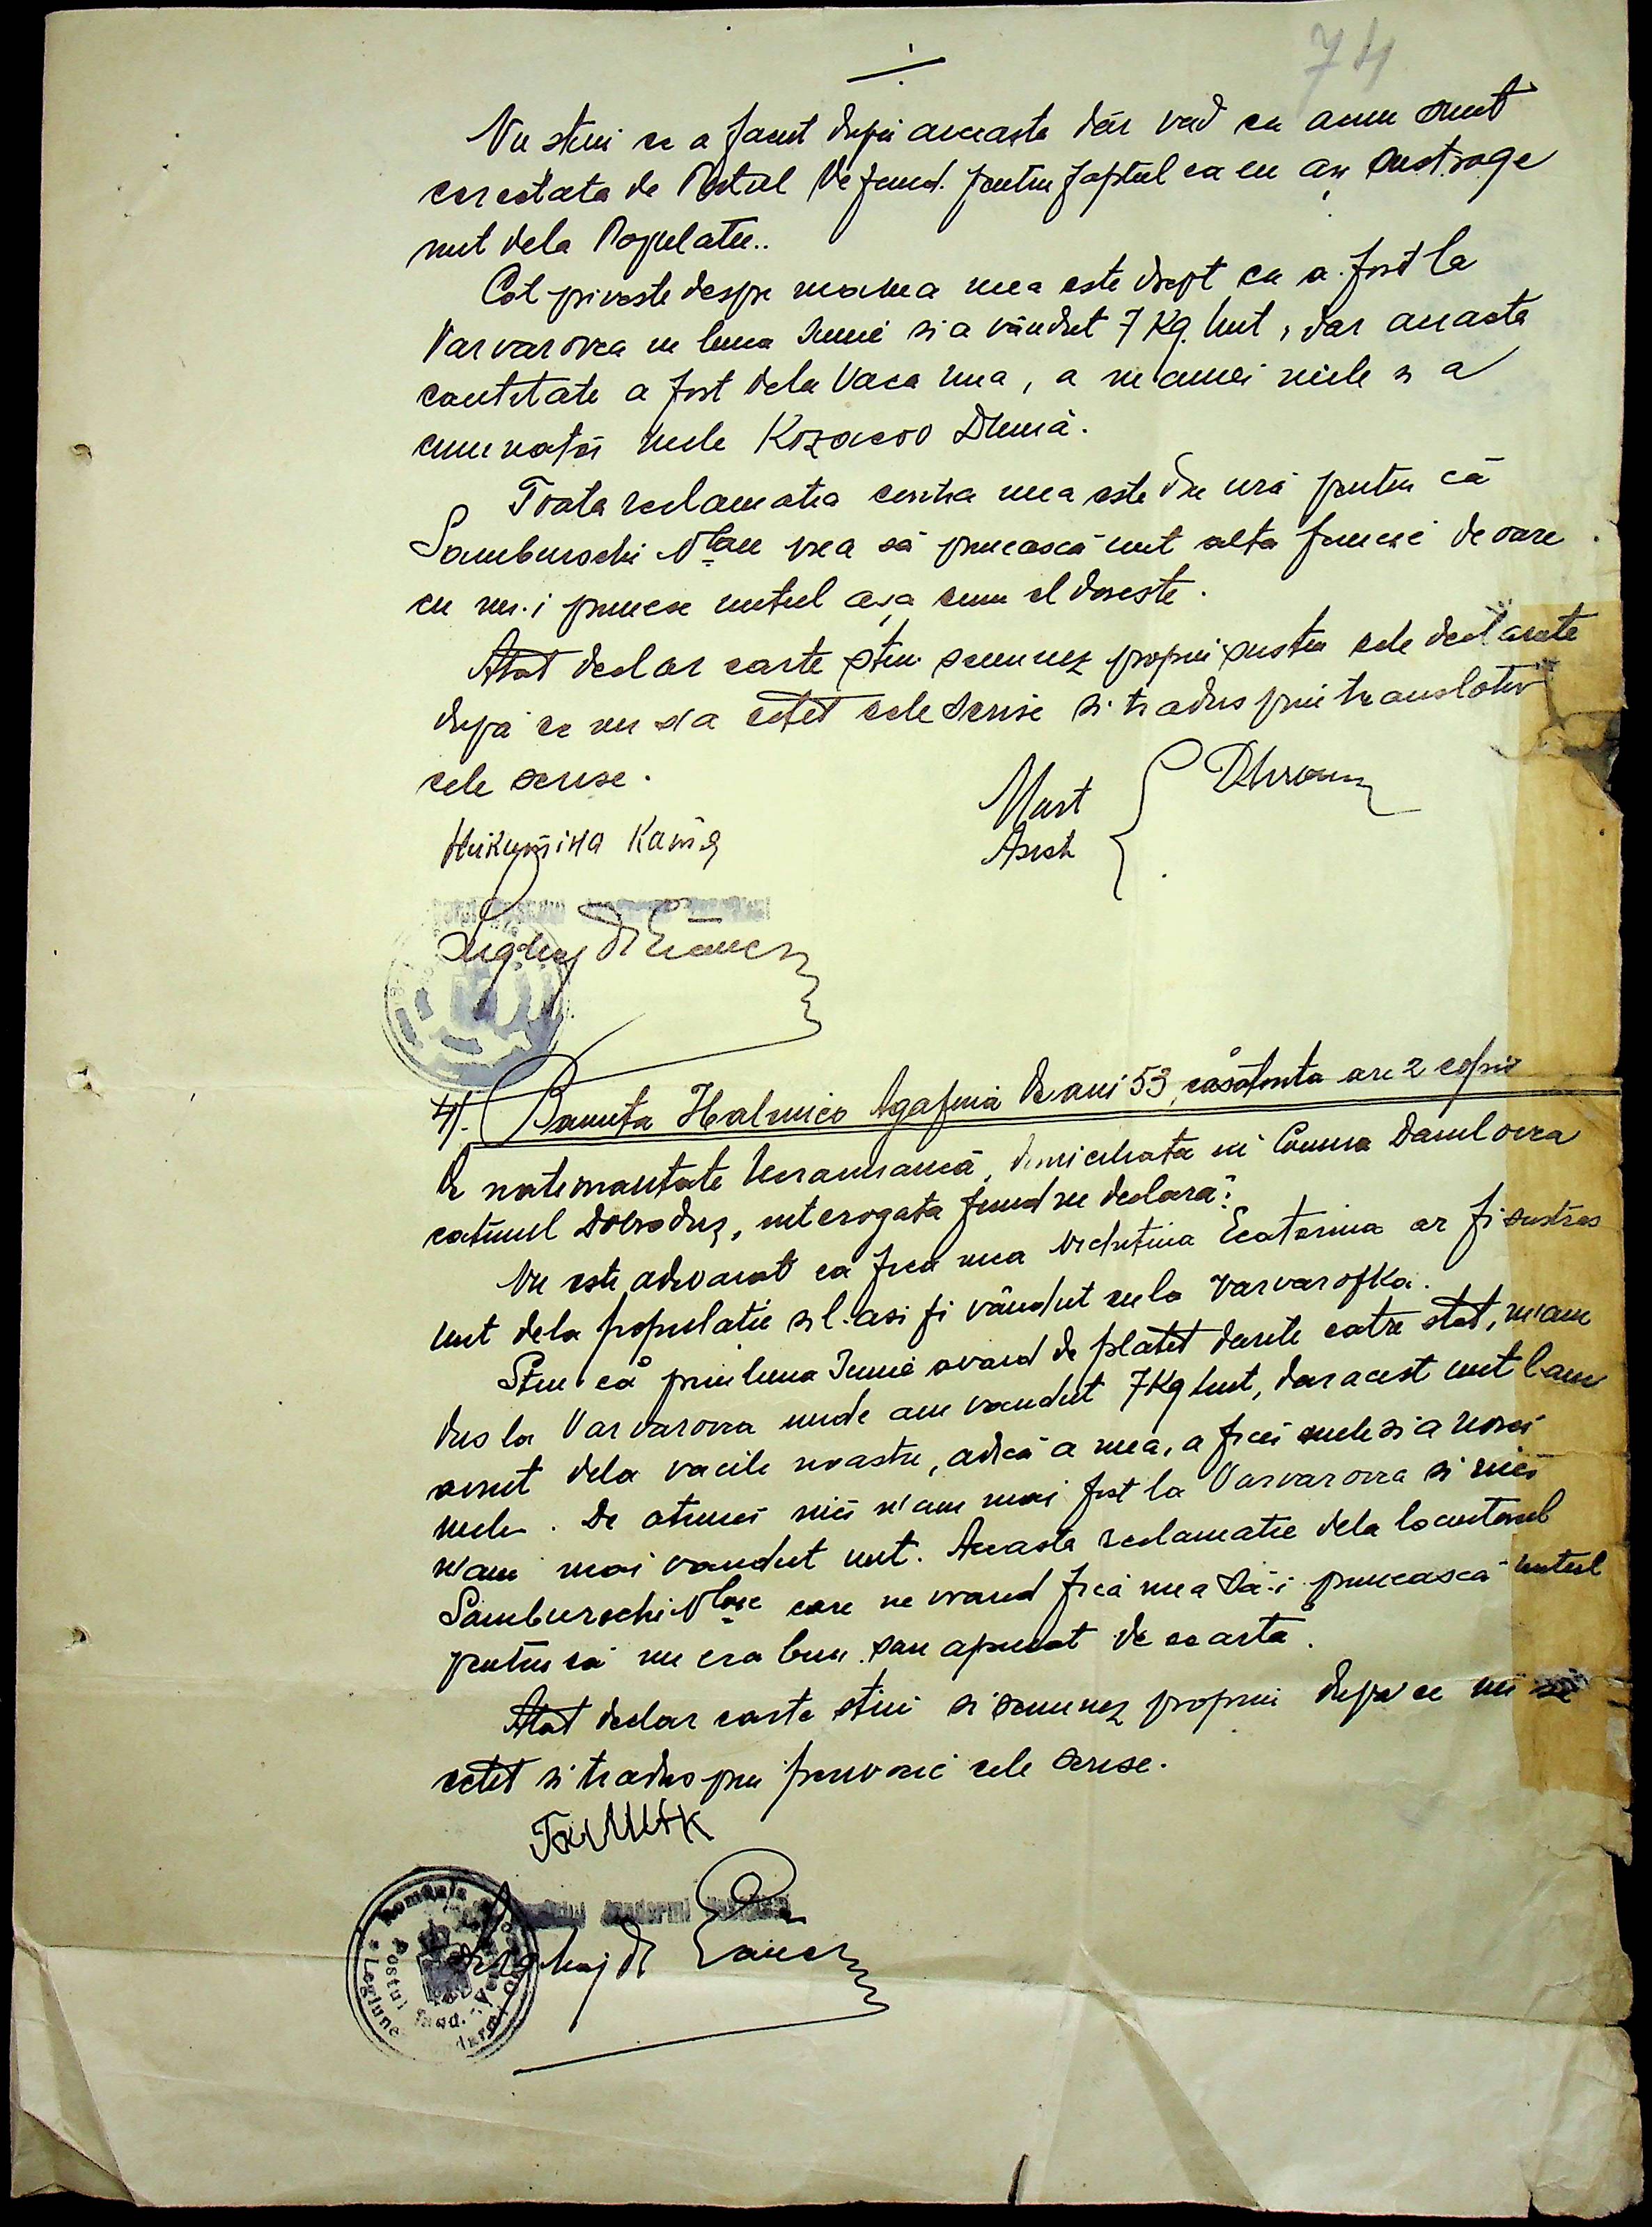 74
Nu stiu ce a facut după aceasta dar vad ca acum sunt
cercetata de Postul de jand. pentru faptul ca eu aș sustrage
unt dela Populatie..
Cat priveste despre mama mea este drept ca a fost la
Varvarovca in luna Iunie si a vândut 7 Kg. unt, dar aceasta
cantitate a fost dela Vaca mea, a mamei mele si a
cumnatei mele Kozacov Dumă.
Toata reclamatia contra mea este din ură pentru că
Samburschi vrea să primească unt alta femeie de oare
ce nu-i primesc untul așa cum el doreste.
Atat declar carte știu semnez propriu sustin cele declarate
după ce mi s'a cetit cele scrise si tradus prin translator
cele scrise.
Mart
Asist
4). Banuita Halmico Agafinia de ani 53, căsătorita are 2 copii
de nationantate Ucraineană, domiciliata in Comuna Danilovca
catunul, interogata fiind ne declara:
Nu este adevarat ca fica mea Ecaterina ar fi sustras
unt dela populatie si l-asi fi vândut eu la Varvarofka.
Stiu că prin luna Iunie avand de platit darile catre stat, m'am
dus la Varvarovca unde am vandut 7 Kg unt, dar acest unt l-am
avut dela vacile noastre, adică a mea, a ficei mele si a norei
mele. De atunci nici n'am mai fost la Varvarovca si nici
n'am mai vandut unt. Aceasta reclamatie dela locuitorul
Samburschi care ne vrand fica mea să-i primească untul
pentru că nu era bun s'au apucat de cearta.
Atat declar carte stiu si semnez propriu dupa ce mi sa
cetit si tradus prin cele scrise.
România
Postul Jand.
Legiune